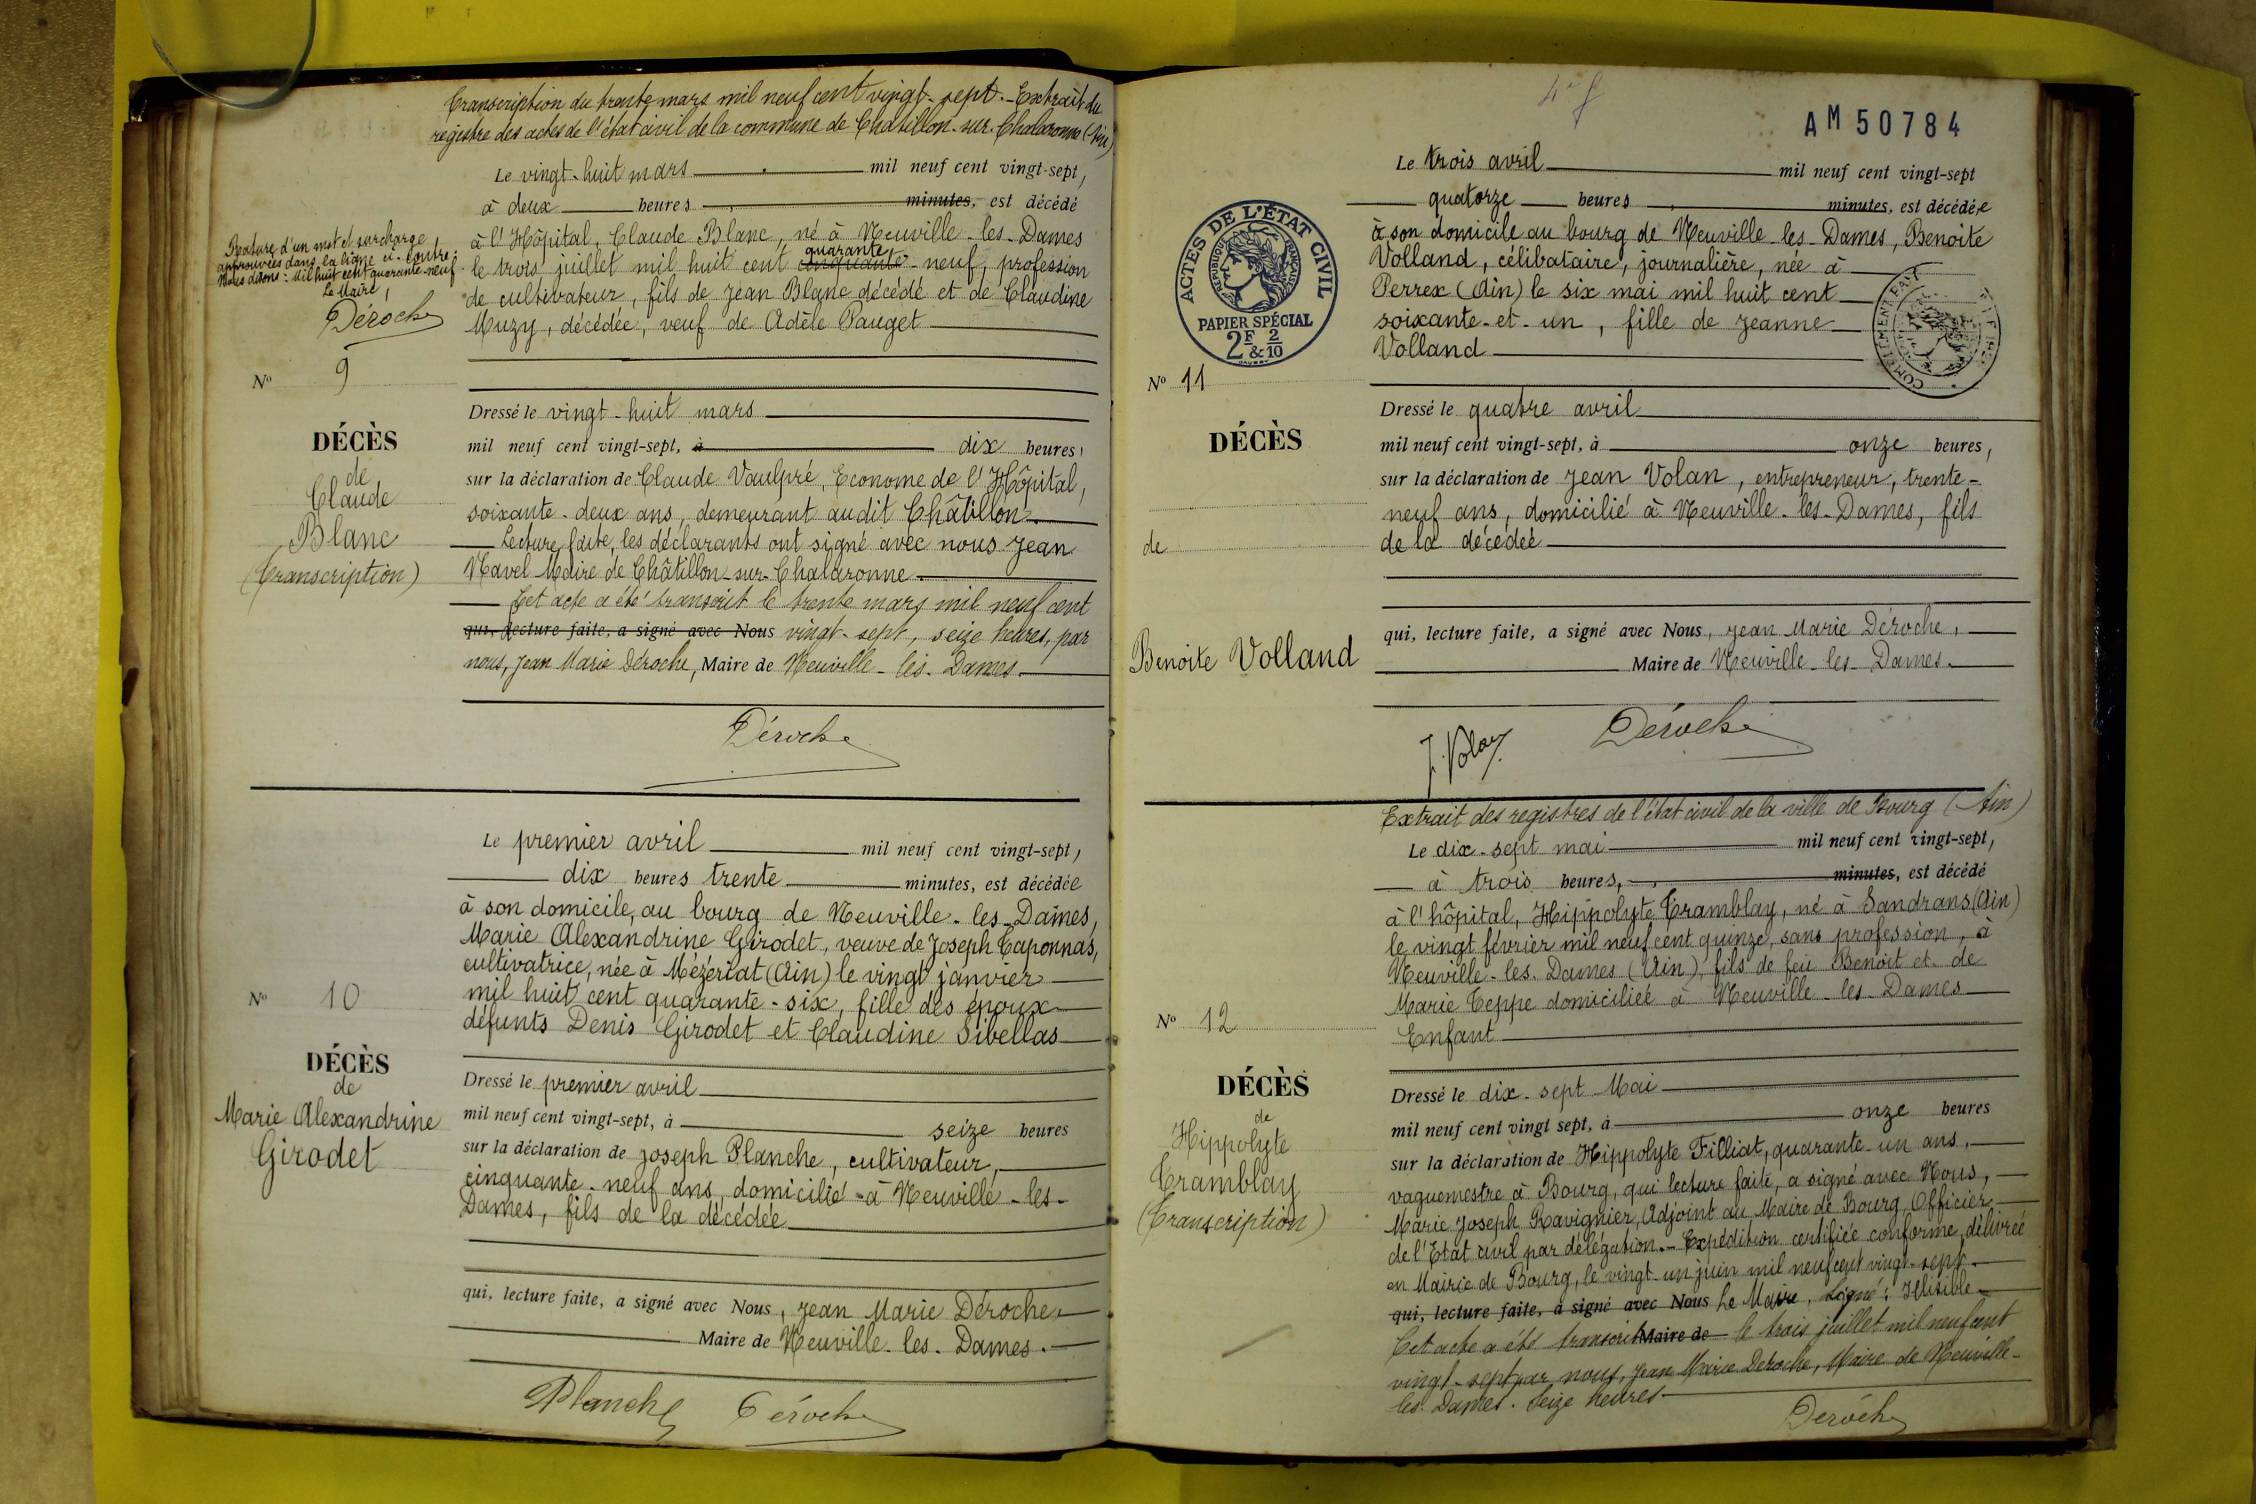 Transcription du trente mars mil neuf cent vingt-sept.- Extrait du
registre des actes de l'état civil de la commune de Chatillon-sur-Chalaronne (Ain)
Le vingt-huit mars mil neuf cent vingt-sept,
à deux heures minutes, est décédé
à l'Hôpital, Claude Blanc, né à Neuville-les-Dames
quarante
le trois juillet mil huit cent cinquante-neuf, profession
de cultivateur, fils de Jean Blanc décédé et de Claudine
Muzy, décédée, veuf de Adèle Pauget
Rature d'un mot et surcharge,
approuvées dans la ligne ci-contre.
Nous disons: Mil huit cent quarante-neuf.
Le Maire,
Déroche
No 9
DÉCÈS
de
Claude
Blanc
(Transcription)
Dressé le vingt-huit mars
mil neuf cent vingt-sept, à dix heures,
sur la déclaration de Claude Vaulpré, Econome de l'Hôpital,
soixante-deux ans, demeurant audit Châtillon.
Lecture faite, les déclarants ont signé avec nous Jean
Navel Maire de Châtillon-sur-Chalaronne.
Cet acte a été transcrit le trente mars mil neuf cent
qui, lecture faite, a signé avec Nous vingt-sept, seize heures, par
nous, Jean Marie Déroche, Maire de Neuville-les-Dames.
Déroche
Le premier avril mil neuf cent vingt-sept,
dix heures trente minutes, est décédée
à son domicile, au bourg de Neuville-les-Dames,
Marie Alexandrine Girodet, veuve de Joseph Taponnas,
cultivatrice, née à Mézériat (Ain) le vingt janvier
mil huit cent quarante-six, fille des époux
défunts Denis Girodet et Claudine Sibellas
No 10
DÉCÈS
de
Marie Alexandrine
Girodet
Dressé le premier avril
mil neuf cent vingt-sept, à seize heures
sur la déclaration de Joseph Planche, cultivateur,
cinquante-neuf ans, domicilié à Neuville-les-
Dames, fils de la décédée
qui, lecture faite, a signé avec Nous, Jean Marie Déroche,
Maire de Neuville-les-Dames.
Planche Déroche
4e f
AM 50784
Le trois avril mil neuf cent vingt-sept
quatorze heures minutes, est décédée
à son domicile au bourg de Neuville-les-Dames, Benoite
Volland, célibataire, journalière, née à
Perrex (Ain) le six mai mil huit cent
soixante-et-un, fille de Jeanne
Volland
ACTES DE L'ÉTAT CIVIL
RÉPUBLIQUE FRANÇAISE
PAPIER SPÉCIAL
2F & 2/10
No 11
DÉCÈS
de
Benoite Volland
Dressé le quatre avril
mil neuf cent vingt-sept, à onze heures,
sur la déclaration de Jean Volan, entrepreneur, trente-
neuf ans, domicilié à Neuville-les-Dames, fils
de la décédée
qui, lecture faite, a signé avec Nous, Jean Marie Déroche,
Maire de Neuville-les-Dames.
J. Volan Déroche
Extrait des registres de l'état civil de la ville de Bourg (Ain)
Le dix-sept mai mil neuf cent vingt-sept,
à trois heures, minutes, est décédé
à l'hôpital, Hippolyte Tramblay, né à Sandrans (Ain)
le vingt février mil neuf cent quinze, sans profession, à
Neuville-les-Dames (Ain), fils de feu Benoit et de
Marie Teppe domiciliée à Neuville-les-Dames
Enfant
No 12
DÉCÈS
de
Hippolyte
Tramblay
(Transcription)
Dressé le dix-sept Mai
mil neuf cent vingt sept, à onze heures
sur la déclaration de Hippolyte Filliat, quarante-un ans,
vaguemestre à Bourg, qui lecture faite, a signé avec Nous,
Marie Joseph Ravignier, Adjoint au Maire de Bourg, Officier
de l'Etat civil par délégation.- Expédition certifiée conforme, délivrée
en Mairie de Bourg, le vingt-un juin mil neuf cent vingt-sept.
qui, lecture faite, a signé avec Nous Le Maire, Signé: Illisible
Cet acte a été transcrit Maire de le trois juillet mil neuf cent
vingt-sept par nous, Jean Marie Déroche, Maire de Neuville-
les-Dames. Seize heures
Déroche